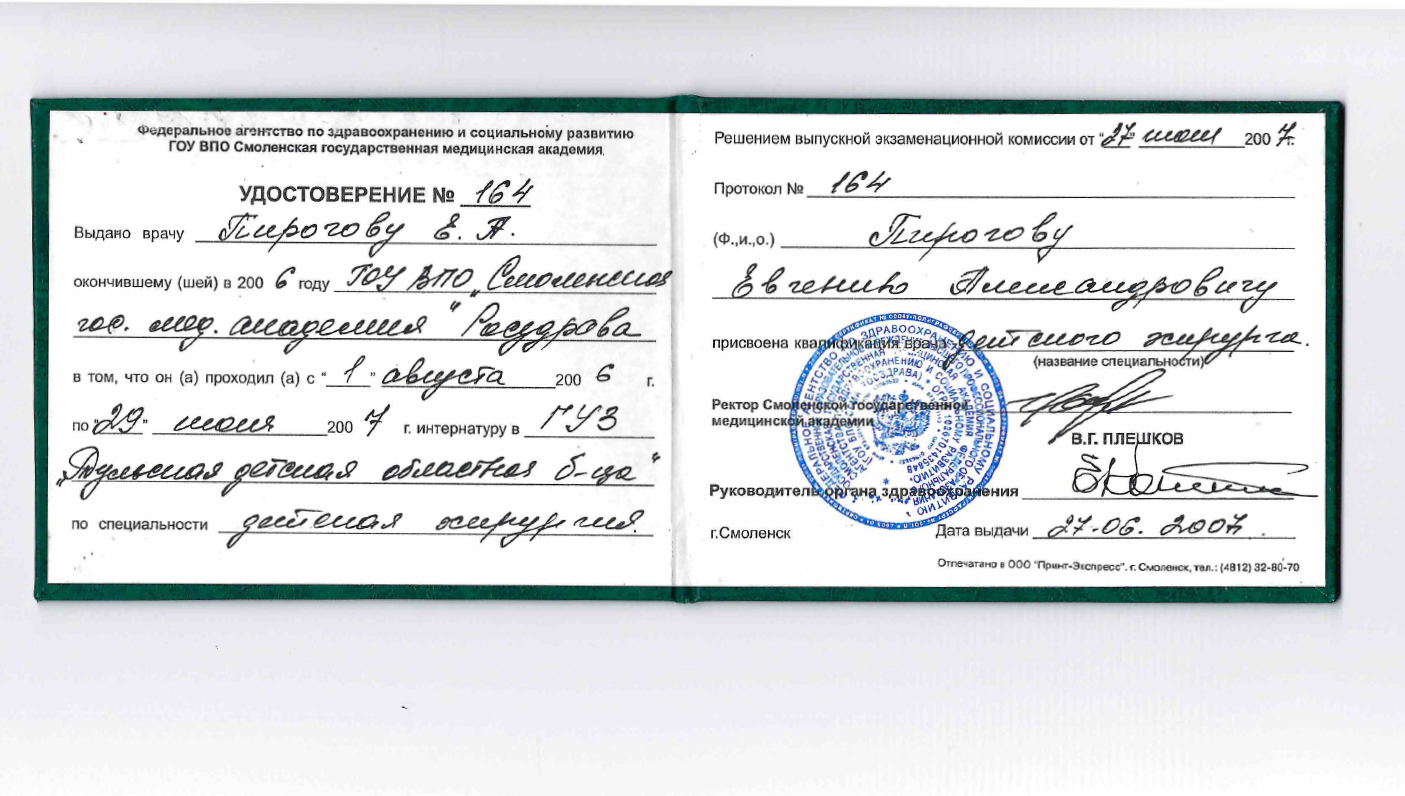 Федеральное агентство по здравоохранению и социальному развитию
ГОУ ВПО Смоленская государственная медицинская академия
УДОСТОВЕРЕНИЕ № 164
Выдано врачу Пирогову Е. А.
окончившему (шей) в 200 6 году ГОУ ВПО „Смоленская
гос. мед. академия" Росздрава
в том, что он (а) проходил (а) с "1" августа 200 6 г.
по "29" июня 200 7 г. интернатуру в ГУЗ
„Тульская детская областная б-ца"
по специальности детская хирургия.
Решением выпускной экзаменационной комиссии от "27" июня 200 7 г.
Протокол № 164
(Ф.,и.,о.) Пирогову
Евгению Александровичу
присвоена квалификация врача детского хирурга.
(название специальности)
Ректор Смоленской государственной
медицинской академии
В.Г. ПЛЕШКОВ
Руководитель органа здравоохранения
г.Смоленск Дата выдачи 27.06. 2007г.
Отпечатано в ООО "Принт-Экспресс". г. Смоленск, тел.: (4812) 32-80-70